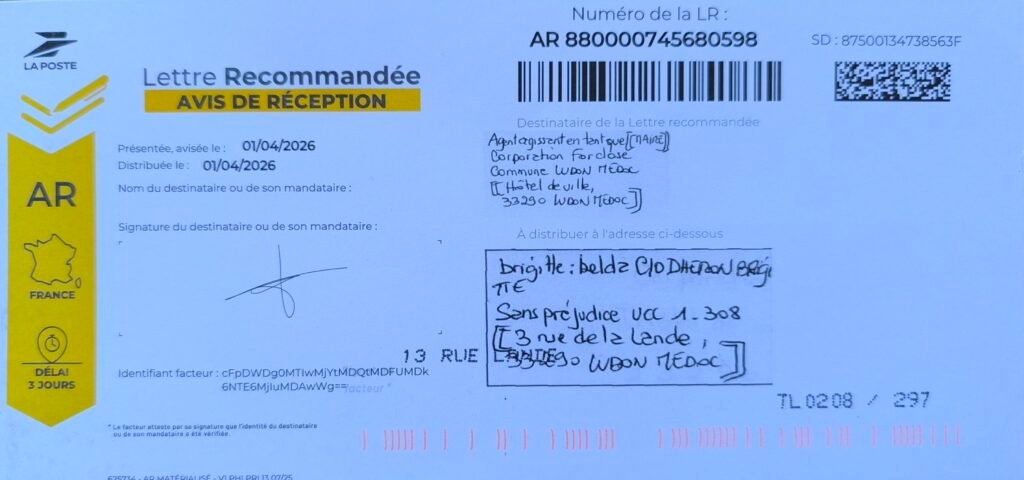 LA POSTE
Lettre Recommandée
AVIS DE RÉCEPTION
Numéro de la LR :
AR 880000745680598
SD : 87500134738563F
Présentée, avisée le : 01/04/2026
Distribuée le : 01/04/2026
Nom du destinataire ou de son mandataire :
Signature du destinataire ou de son mandataire :
AR
FRANCE
DÉLAI
3 JOURS
Destinataire de la Lettre recommandée
Agent agissant en tant que [[MAIRE]]
Corporation Forclose
Commune LUDON MÉDOC
[[Hôtel de ville,
33290 LUDON MÉDOC]]
À distribuer à l'adresse ci-dessous
brigitte : belda C/O DHERON BRIGI
TTE
Sans préjudice UCC 1-308
[[3 rue de la Lande,
33290 LUDON MÉDOC]]
13 RUE
Identifiant facteur : cFpDWDg0MTIwMjYtMDQtMDFUMDk
6NTE6MjIuMDAwWg==
facteur *
TL0208 / 297
* Le facteur atteste par sa signature que l'identité du destinataire
ou de son mandataire a été vérifiée.
625734 - AR MATÉRIALISÉ - V1 PHI PRI 13 07/25